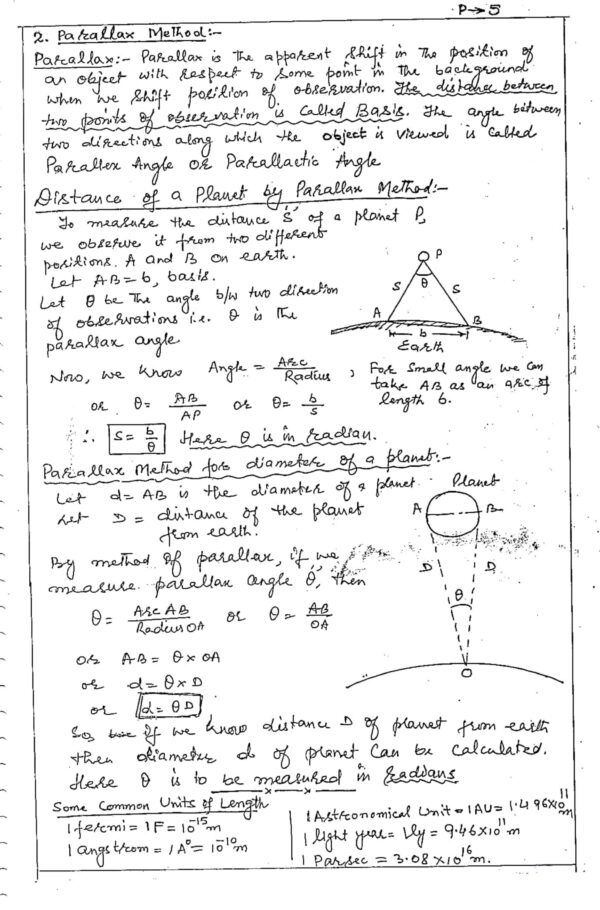 P→5
2. Parallax Method:-
Parallax:- Parallax is the apparent shift in the position of
an object with respect to some point in the background
when we shift position of observation. The distance between
two points of observation is called Basis. The angle between
two directions along which the object is viewed is called
Parallex Angle or Parallactic Angle
Distance of a Planet by Parallax Method:-
To measure the distance 'S' of a planet P,
we observe it from two different
positions. A and B on earth.
Let AB = b, basis.
Let θ be the angle b/w two direction
of observations i.e. θ is the
parallax angle
P
θ
S S
A B
b
Earth
Now, we know Angle = Arc/Radius , For small angle we can
take AB as an arc of
length b.
or θ = AB/AP or θ = b/s
∴ s = b/θ Here θ is in radian.
Parallax Method for diameter of a planet:-
Let d = AB is the diameter of a planet
Let D = distance of the planet
from earth.
Planet
A B
D D
θ
O
By method of parallax, if we
measure parallax angle θ, then
θ = Arc AB/Radius OA or θ = AB/OA
or AB = θ × OA
or d = θ × D
or d = θD
So, if we know distance D of planet from earth
then diameter d of planet can be calculated.
Here θ is to be measured in radians
Some Common Units of Length
1 fermi = 1F = 10^-15 m
1 angstrom = 1A° = 10^-10 m
1 Astronomical Unit = 1AU = 1.496×10^11 m
1 light year = 1ly = 9.46×10^11 m
1 Parsec = 3.08×10^16 m.